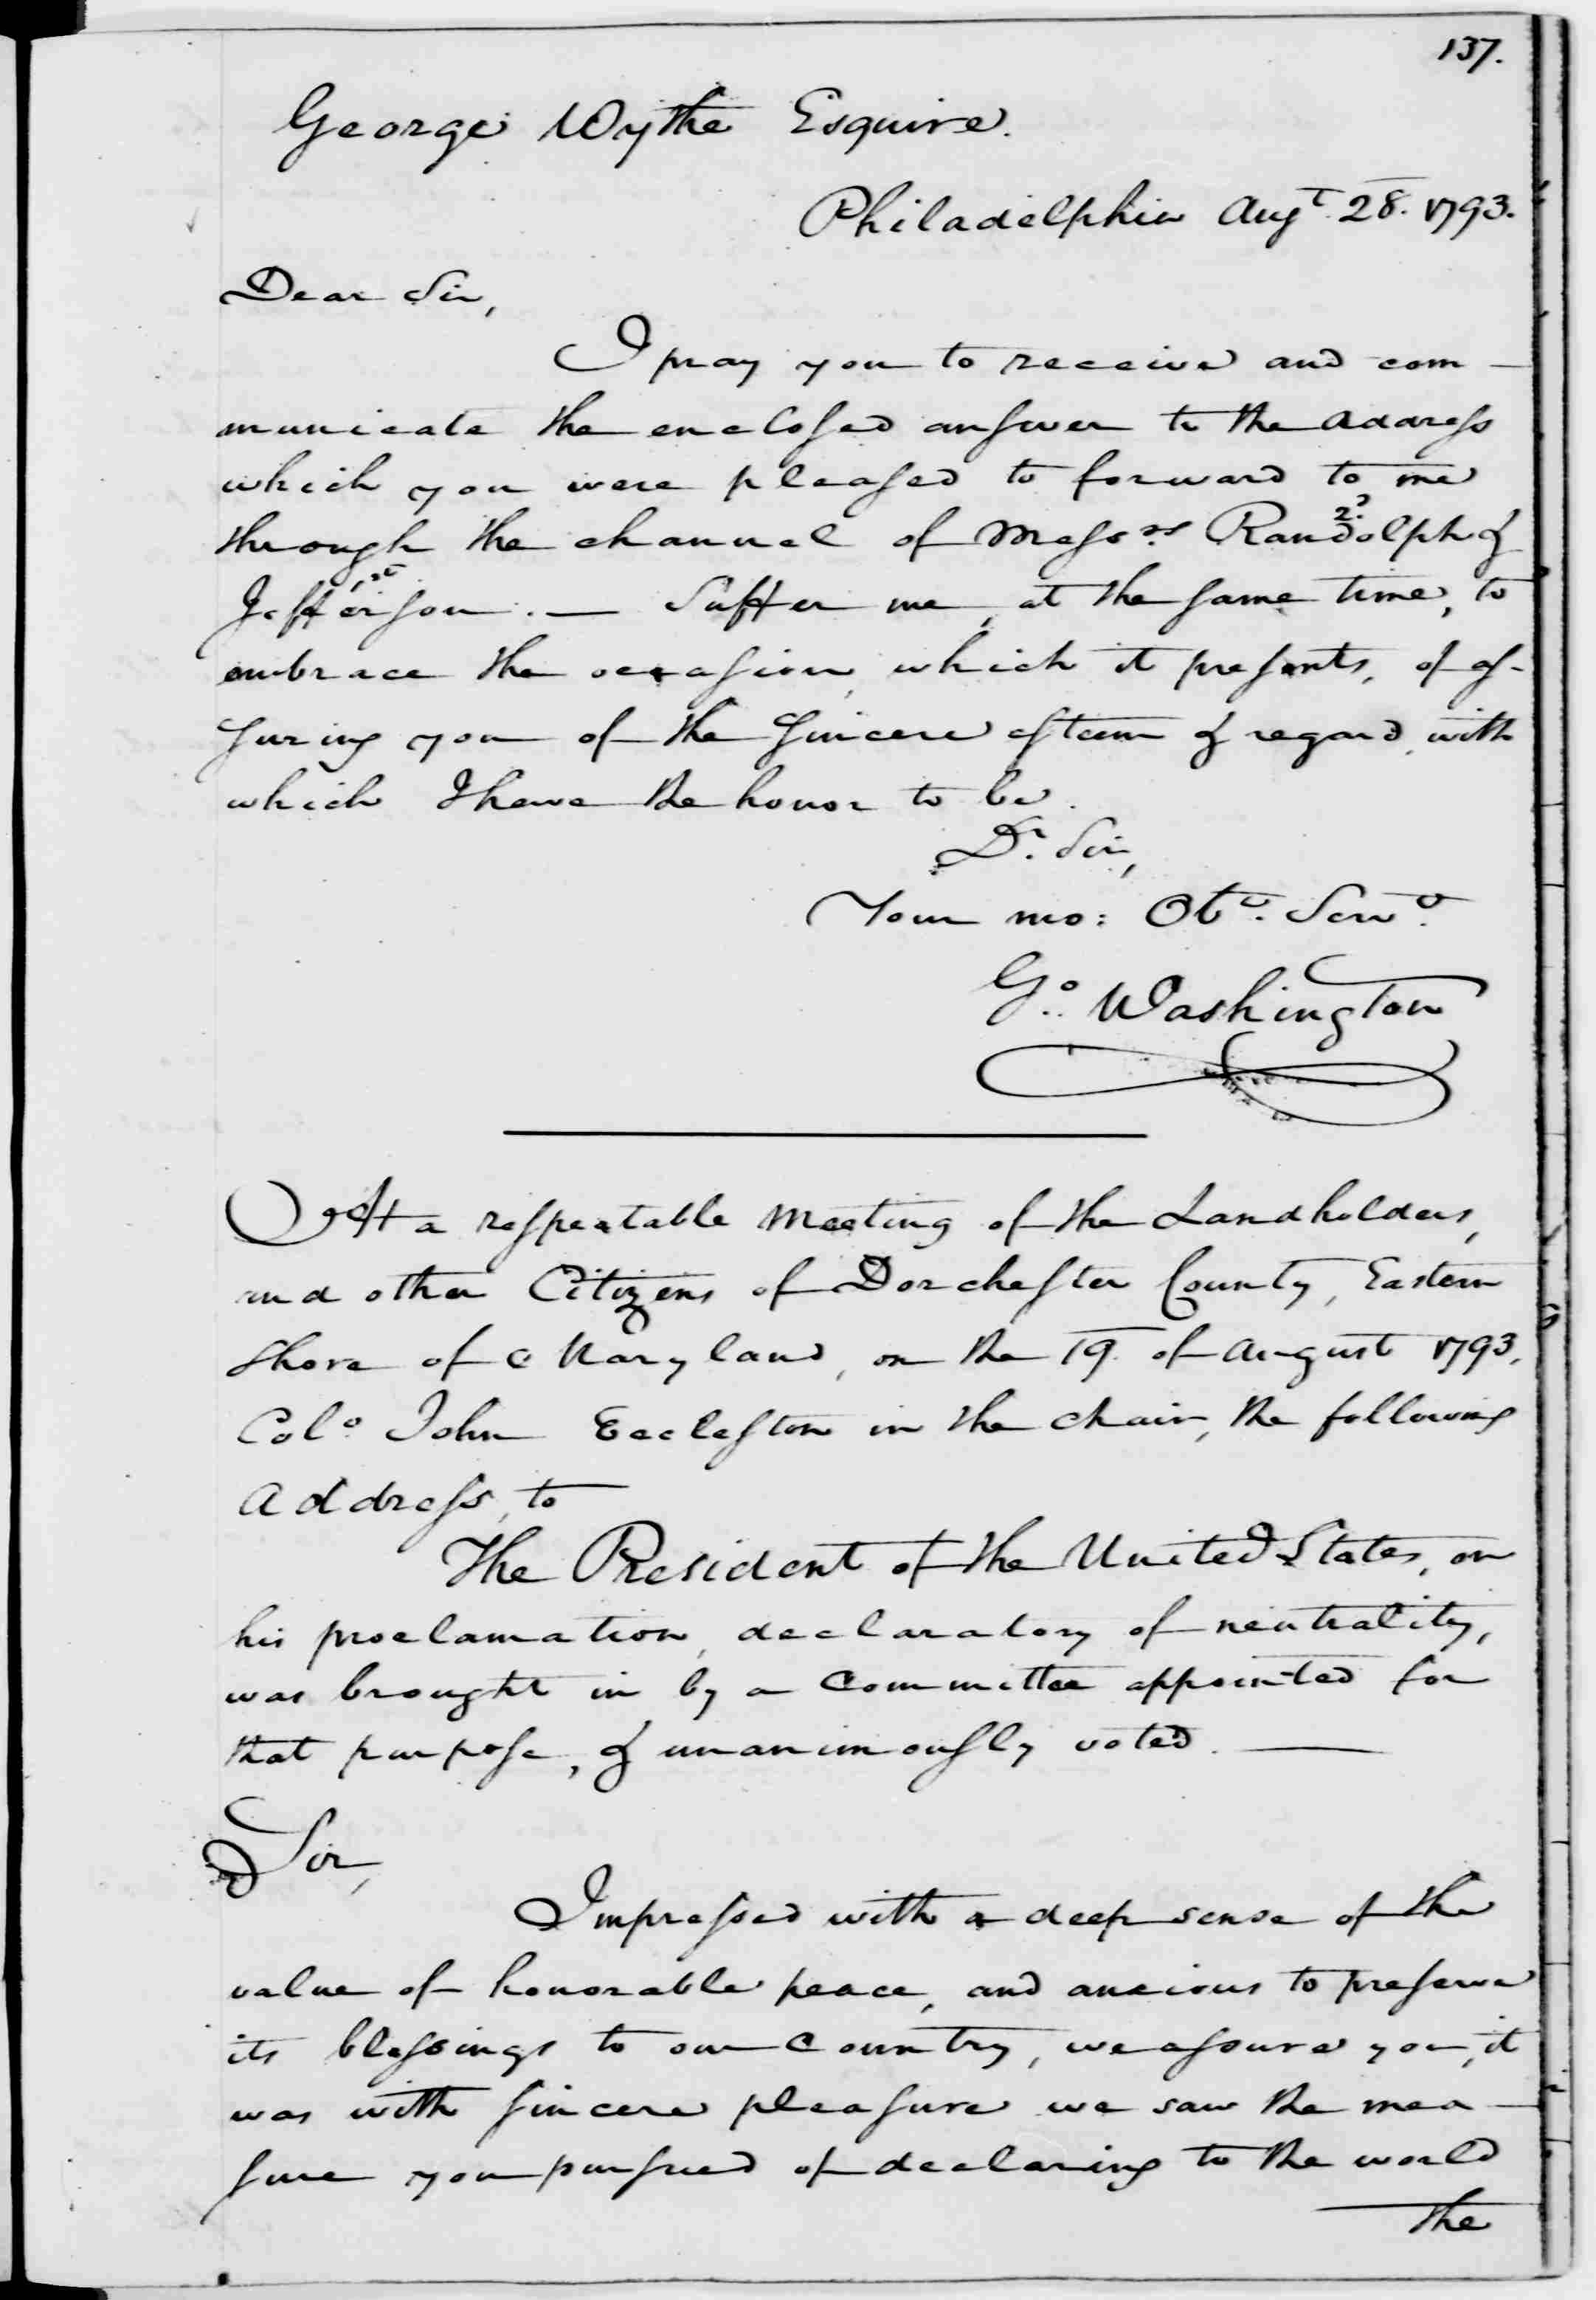 137.
George Wythe Esquire.
Philadelphia Augt. 28. 1793.
Dear Sir,
I pray you to receive and com-
municate the enclosed answer to the address
which you were pleased to forward to me
through the channel of Messrs. Randolph &
2d.
Jefferson. — Suffer me, at the same time, to
1st
embrace the occasion, which it presents, of as-
suring you of the sincere esteem & regard, with
which I have the honor to be.
Dr. Sir,
Your mo: Obt. Servt.
Go. Washington
At a respectable Meeting of the Landholders,
and other Citizens of Dorchester County, Eastern
Shore of Maryland, on the 19. of August 1793,
Colo. John Eccleston in the chair, the following
Address, to
The President of the United States, on
his proclamation, declaratory of neutrality,
was brought in by a Committee appointed for
that purpose, & unanimously voted. —
Sir,
Impressed with a deep sense of the
value of honorable peace, and anxious to preserve
its blessings to our Country, we assure you, it
was with sincere pleasure we saw the mea-
sure you pursued of declaring to the world
the